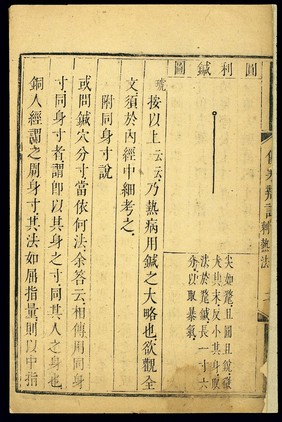 圓利鍼圖
尖如氂且圓且銳微
大其末反小其身取
法於氂鍼長一寸六
分以取暴氣
琥按以上云云乃熱病用鍼之大略也欲觀全
文須於內經中細考之
附同身寸說
或問鍼穴分寸當依何法余答云相傳用同身
寸同身寸者謂卽以其身之寸同其人之身也
銅人經謂之周身寸其法如屈指量則以中指